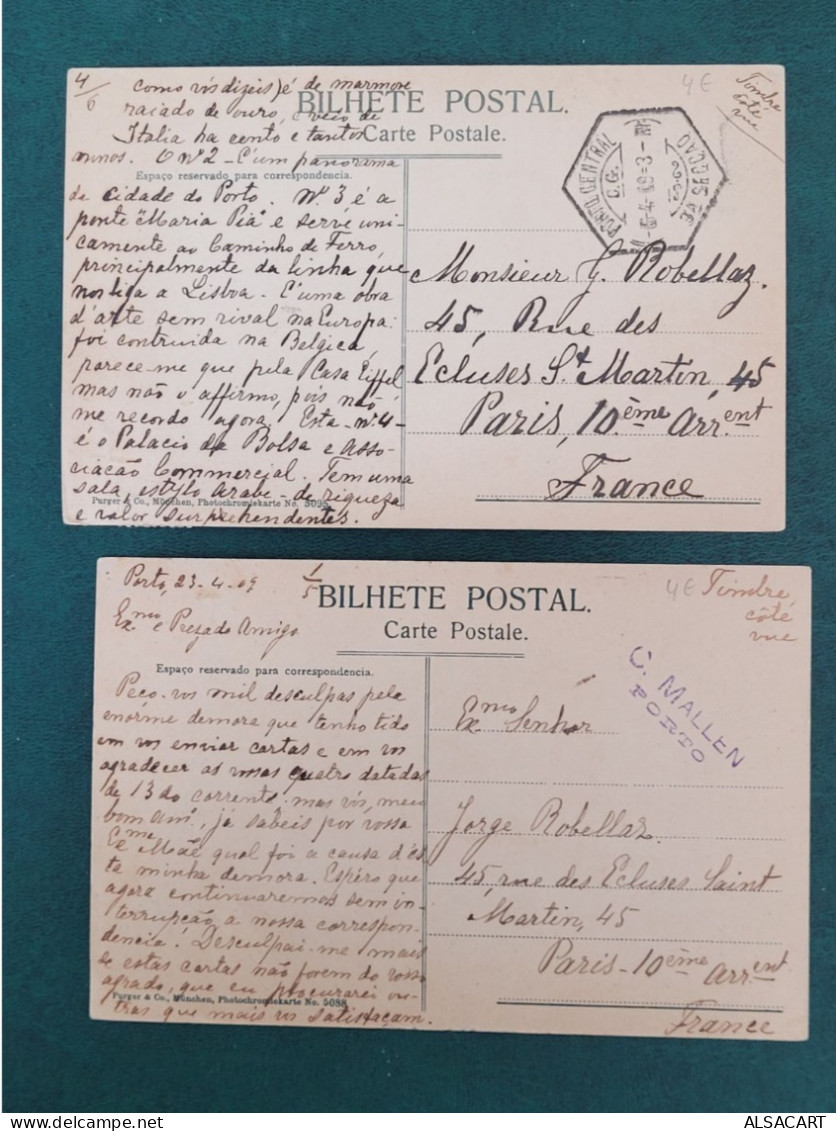 4/6
como vós dizeis) é de marmore
raiado de ouro, e veio de
Italia ha cento e tantos
annos. O nº 2 - É um panorama
BILHETE POSTAL.
Carte Postale.
4 €
Timbre
côté
vue
Espaço reservado para correspondencia.
da cidade do Porto. Nº. 3 é a
ponte "Maria Pia" e serve uni-
camente ao Caminho de Ferro,
principalmente da linha que
nos liga a Lisboa. É uma obra
d'arte sem rival na Europa:
foi contruida na Belgica
parece-me que pela Casa Eiffel
mas não o affirmo, pois não
me recordo agora. Esta - nº. 4 -
é o Palacio da Bolsa e Asso-
ciacão Commercial. Tem uma
sala, estylo arabe - de riqueza
e valor surprehendentes.
Purger & Co., München, Photochromiekarte No.
PORTO CENTRAL
Monsieur G. Robellaz.
45, Rue des
Ecluses St. Martin, 45
Paris, 10ème Arr.ent
France
Porto, 23-4-09
1/5
BILHETE POSTAL.
Carte Postale.
4 € Timbre
côté
vue
Exmo e Prezado Amigo
Espaço reservado para correspondencia.
Peco-vos mil desculpas pela
enórme demora que tenho tido
em vos enviar cartas e em vos
agradecer as vosas quatro datadas
de 13 do corrente, mas vós, meu
bom am., já sabeis por vossa
Exme Mãe qual foi a causa d'és-
ta minha demora. Espéro que
agora continuaremos sem in-
terrupção, a nossa correspon-
dencia! Desculpai-me mais
se estas cartas não forem do vosso
agrado, que eu procurarei ou-
tras que mais vos satisfaçam.
Purger & Co., München, Photochromiekarte No. 5088
C. MALLEN
PORTO
Exmo Senhor
Jorge Robellaz.
45, rue des Ecluses Saint
Martin, 45
Paris - 10ème Arr.ent
France
ALSACART